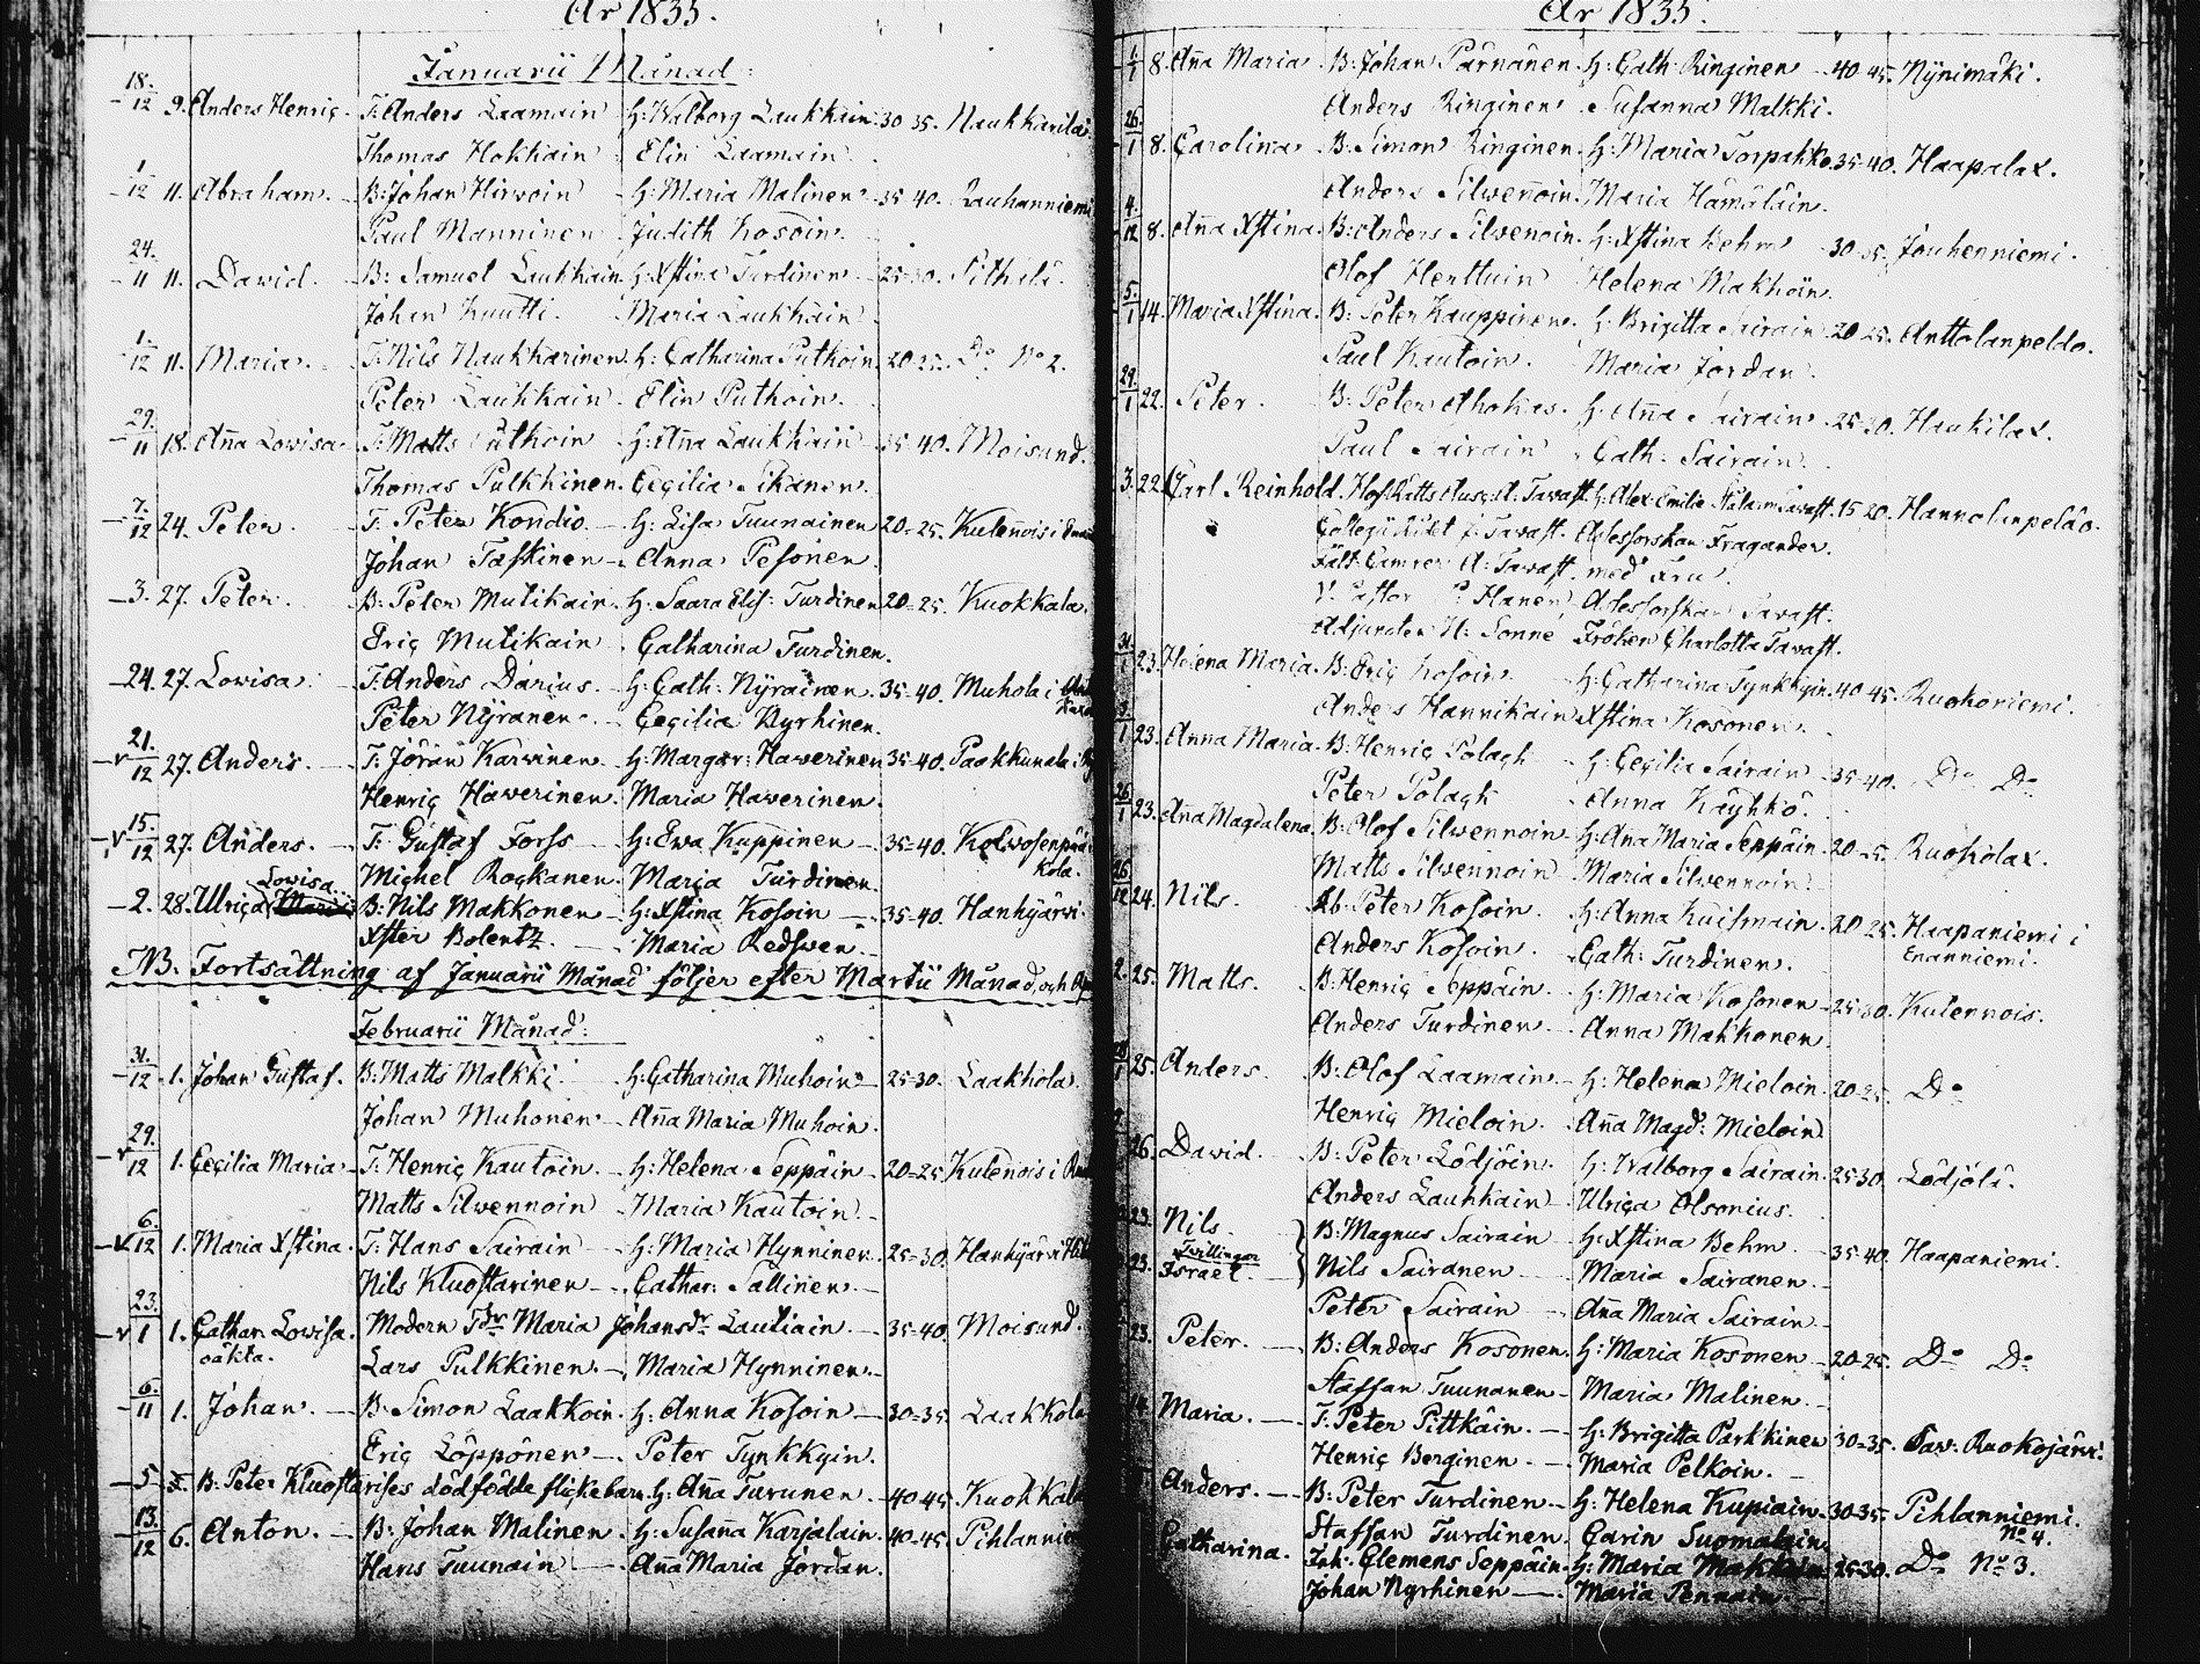 År 1835.
Januarii Månad:
18./12 9. Anders Henriç. T. Anders Laamain H: Walborg Laukkain 30 35. Naukkarila.
Thomas Hokkain Elin Laamain.
1/12 11. Abraham. B: Johan Hirwoin H: Maria Malinen 35 40. Rauhanniemi
Paul Manninen Judith Kosoin.
24./11 11. David. B: Samuel Laukkain H: Xstina Turdinen 25-30.
Johan Kuutti. Maria Laukkain
1./12 11. Maria. T: Nils Naukkarinen. H: Catharina Putkoin. 20 25. Do No 2.
Peter Laukkain. Elin Putkoin.
29./11 18. Aña Lowisa. T: Matts Putkoin H: Aña Laukkain 35 40. Moisund.
Thomas Pulkkinen. Cecilia Sikanen.
7./12 24. Peter. T. Peter Kondio. H: Lisa Tuunainen 20-25. Kuleñois i
Johan Taskinen Anna Pesonen.
3. 27. Peter. B: Peter Mutikain. H: Saara Elis: Turdinen 20-25. Kuokkala.
Eriç Mutikain Catharina Turdinen.
24. 27. Lowisa. T: Anders Darius. H: Cath: Nÿrainen. 35-40. Muhola i
Peter Nÿranen Cecilia Nyrhinen.
21./12 27. Anders. T: Jöran Karvinen. H: Margar: Hawerinen 35-40. Paakkunala i
Henriç Hawerinen. Maria Hawerinen.
15./12 27. Anders. T: Gustaf Forss H: Ewa Kuppinen 35-40. Kolwosenpää
Lowisa Michel Rockanen. Maria Turdinen. kola.
2. 28. Ulriça B: Nils Makkonen H: Xstina Kosoin 35-40. Hankÿärvi.
Xster Bolentz. Maria Redswen.
NB. Fortsättning af Januarii Månad följer efter Martii Månad, och
Februarii Månad:
31./12 1. Johan Gustaf. B: Matts Malkki H: Catharina Muhoin 25-30. Laakkola.
Johan Muhonen Aña Maria Muhoin.
29./12 1. Cecilia Maria T: Henriç Kautoin. H: Helena Seppäin 20-25 Kuleñois i
Matts Silwennoin Maria Kautoin.
6./12 1. Maria Xstina. T: Hans Sairain H: Maria Hynninen. 25-30. Hankÿärvi
Nils Kluostarinen Cathar: Sallinen.
23./1 1. Cathar. Lowisa. Modern Tdr Maria Johansdr Lautiain. 35-40. Moisund.
oäkta. Lars Pulkkinen. Maria Hynninen.
6./11 1. Johan. B. Simon Laakkoin. H: Anna Kosoin 30-35. Laakkola
Eriç Löppönen Peter Tynkkyin.
5 5. B: Peter Kluostarises dödfödde flickebarn. H: Aña Turunen. 40-45. Kuokkala
13./12 6. Anton. B: Johan Malinen. H: Susaña Karjalain. 40-45. Pihlannie
Hans Tuunain Aña Maria Jordan.
År 1835.
1/1 8. Aña Maria. B: Johan Pärnänen. H: Cath: Ringinen 40-45. Nÿnimäki.
Anders Ringinen. Susanna Malkki.
26./1 8. Carolina. B: Simon Ringinen. H: Maria Torpakko. 35-40. Haapalax.
Anders Silwenoin. Maria Hämäläin.
4./12 8. Aña Xstina. B: Anders Silwenoin. H: Xstina Behm 30-35. Jouhenniemi.
Olof Herttuin Helena Makkoin.
5./1 14. Maria Xstina. B: Peter Kauppinen. H: Brigitta Sairain 20-25. Anttolanpeldo.
Paul Kautoin. Maria Jordan.
29./1 22. Peter. B: Peter Ahokas. H: Aña Sairain. 25-30. Haukilax.
Paul Sairain Cath: Sairain.
3. 22. Carl Reinhold. HofRätts Ausc: A: Tawast. H: Alex: Emilie 15 20. Hannolanpeldo.
Collegii Rådet J: Tawast. Assessorskan Fragander.
Fält-Camrer A: Tawast. med Fru.
V: Pastor P: Hanén Assessorskan Tawast.
Adjuncten H: Sonné Fröken Charlotta Tawast.
31./1 23. Helena Maria. B: Eriç Kosoin H: Catharina Tynkkyin. 40-45. Ruokoniemi.
Anders Hannikain Xstina Kosonen.
23. Anna Maria. B: Henriç Polack H: Cecilia Sairain 35-40. Do Do
Peter Polack Anna Käyhkö.
26/1 23. Aña Magdalena. B: Olof Silwennoin H: Aña Maria Seppäin. 20-25. Ruokolax.
Matts Silwennoin Maria Silwennoin.
26./12 24. Nils. Peter Kosoin. H: Anna Kuismain. 20 25. Haapaniemi i
Anders Kosoin. Cath: Turdinen. Enanniemi.
2. 25. Matts. B: Henriç Seppäin. H: Maria Kosonen 25-30. Kulennois.
Anders Turdinen. Anna Makkonen
25. Anders. B: Olof Laamain. H: Helena Mieloin. 20-25. Do
Henriç Mieloin. Aña Magd: Mieloin
26. David. B: Peter Lödjöin. H: Walborg Sairain. 25-30. Lödjölä.
Anders Laukkain Ulriça Olsonius.
23. Nils. B: Magnus Sairain H: Xstina Behm 35-40. Haapaniemi.
Tvillingar
23. Israel. Nils Sairanen Maria Sairanen.
Peter Sairain Aña Maria Sairain
23. Peter. B: Anders Kosonen. H: Maria Kosonen 20-25. Do Do
Staffan Tuunanen Maria Malinen.
Maria. T: Peter Pittkäin. H: Brigitta Parkkinen 30-35. Saw: Ruokojärvi.
Henriç Berginen. Maria Pelkoin.
Anders. B: Peter Turdinen H: Helena Kupiain. 30-35. Pihlanniemi.
Staffan Turdinen. Carin Suomalain. No 4.
Catharina. Inh: Clemens Seppäin. H: Maria 25-30. Do No 3.
Johan Nyrhinen Maria Pennain.